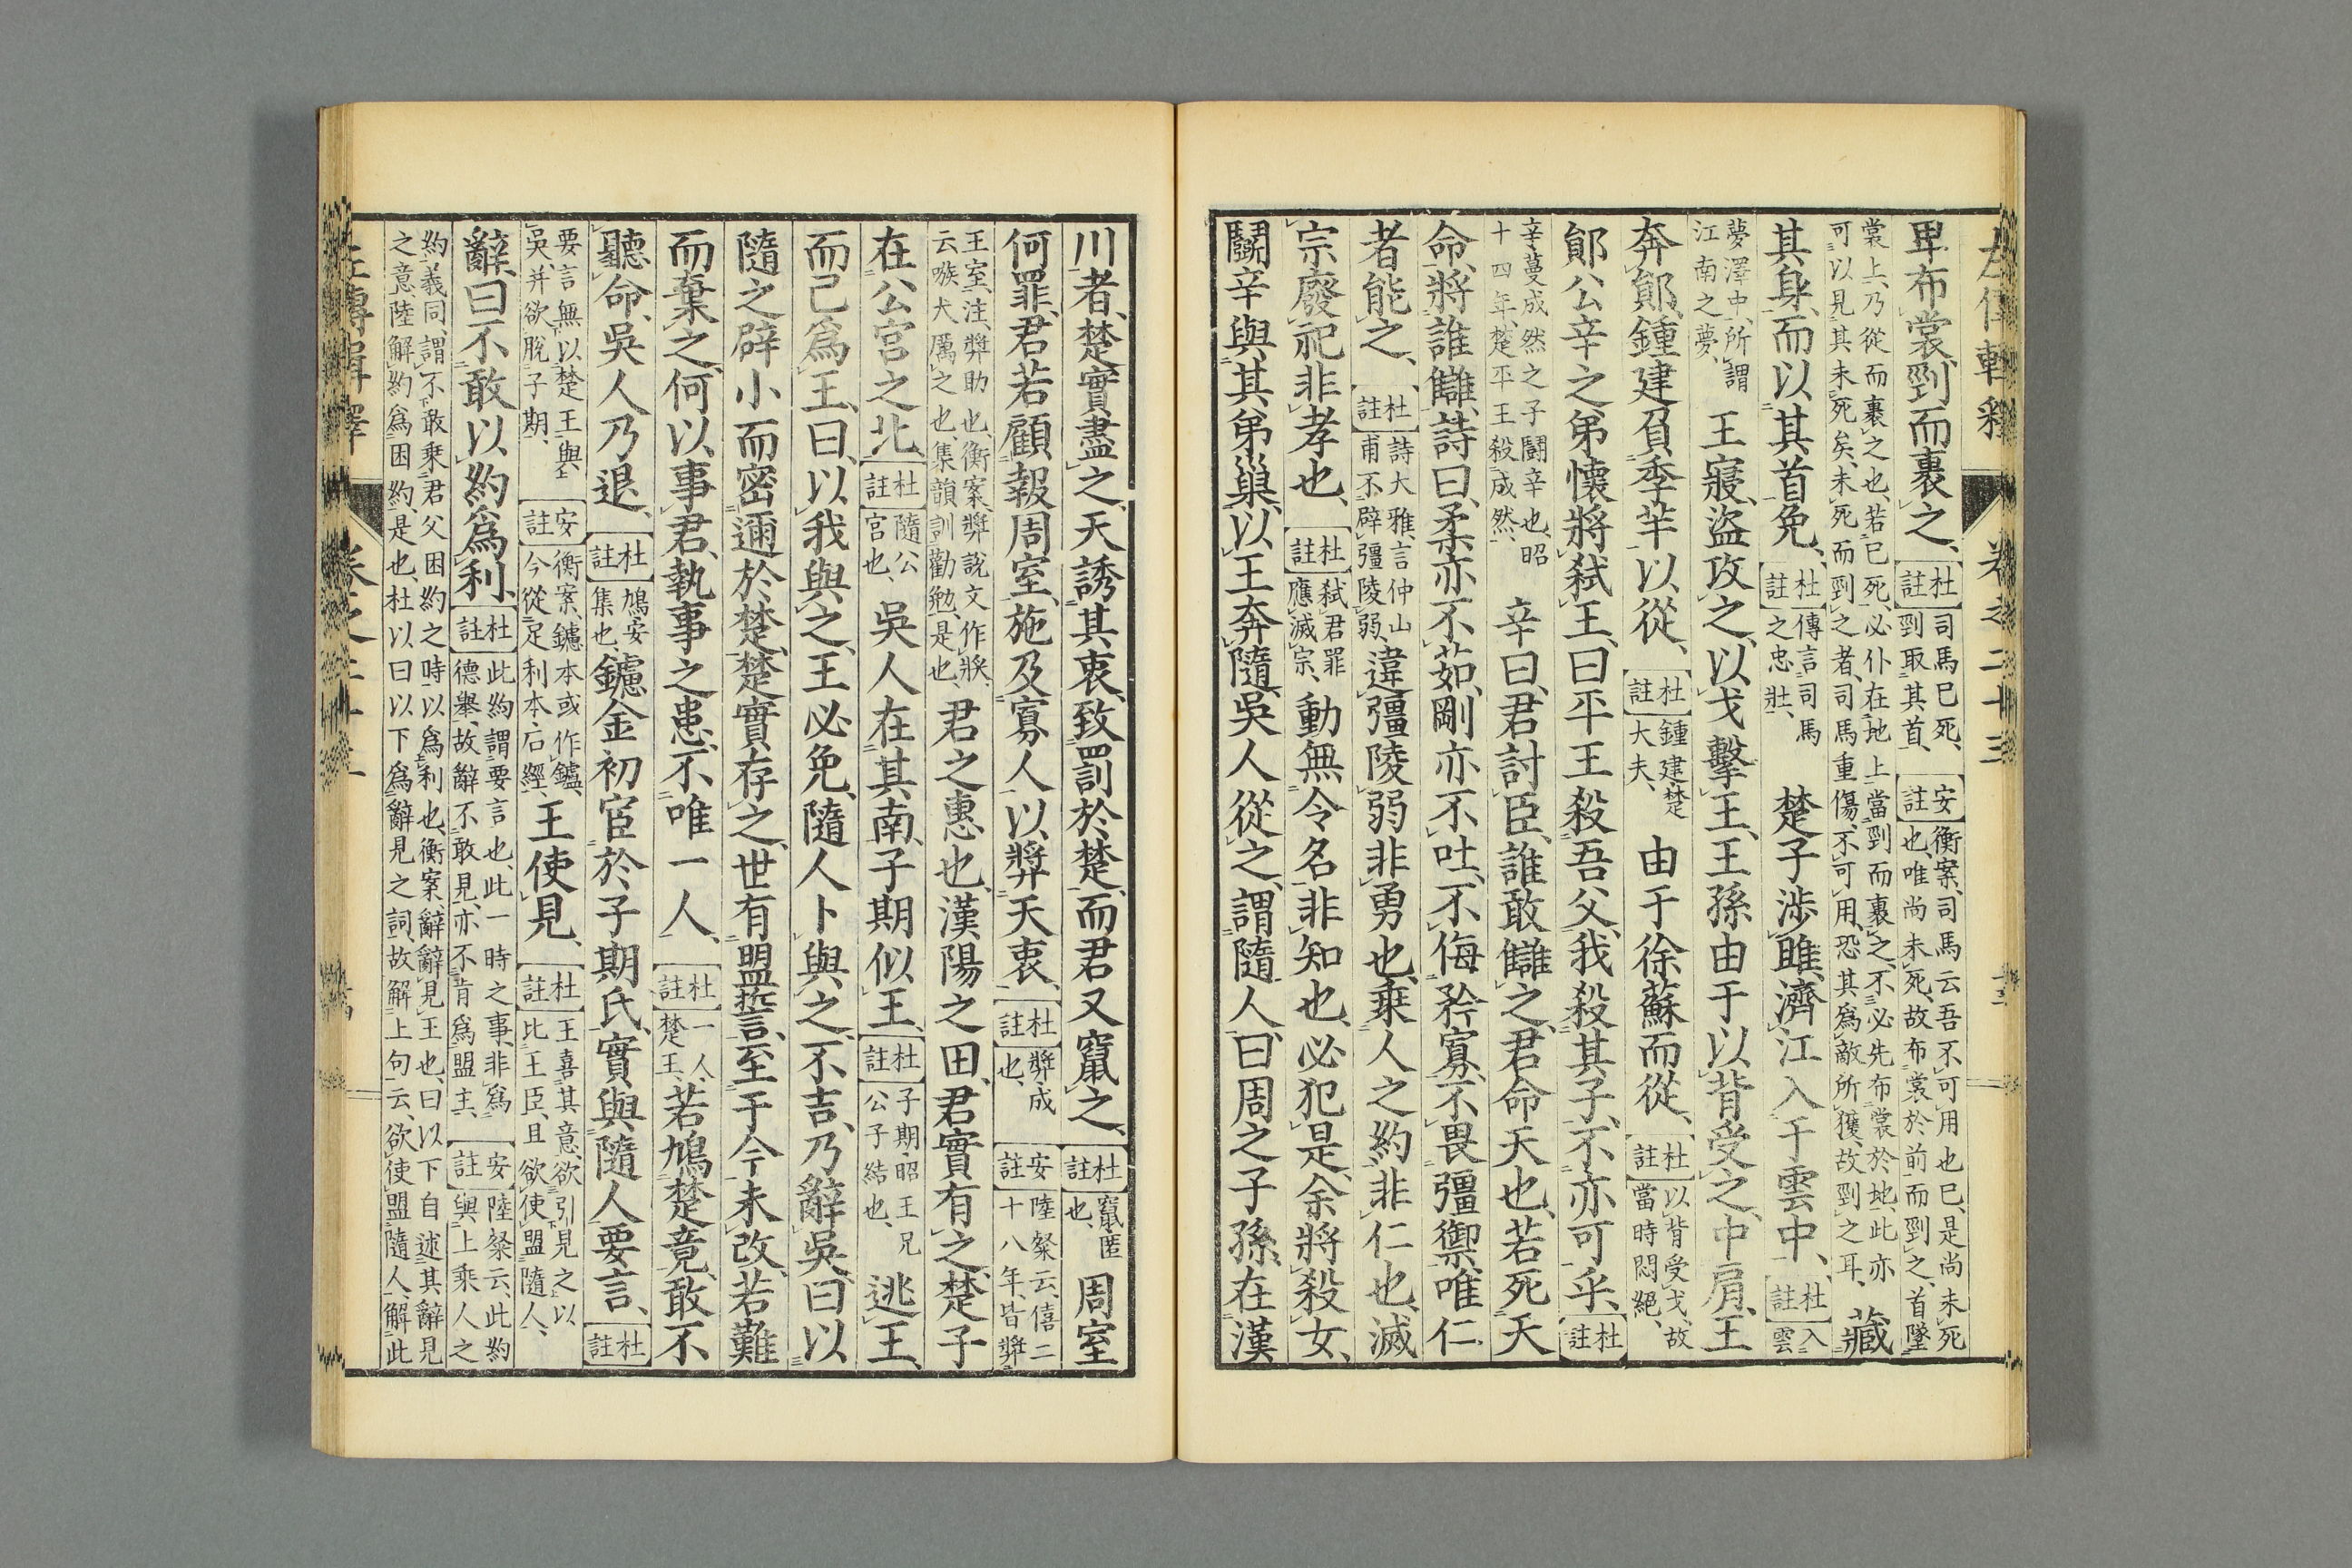 左傳輯釋 卷之二十三
卑布裳、剄而裹之、杜註 司馬已死、剄取其首、安註 衡案、司馬云吾不可用也已、是尚未死也、唯尚未死、故布裳於前而剄之、首墜
裳上、乃從而裹之也、若已死、必仆在地上、當剄而裹之、不必先布裳於地、此亦可以見其未死矣、未死而剄之者、司馬重傷、不可用、恐其爲敵所獲、故剄之耳、藏
其身、而以其首免、杜註 傳言司馬之忠壯、楚子涉雎、濟江入于雲中、杜註 入雲
夢澤中、所謂江南之夢、王寢、盜攻之、以戈擊王、王孫由于以背受之、中肩、王
奔鄖、鍾建負季羋以從、杜註 鍾建、楚大夫、由于徐蘇而從、杜註 以背受戈、故當時悶絕、
鄖公辛之弟懷將弒王、曰平王殺吾父、我殺其子、不亦可乎、杜註
辛、蔓成然之子鬭辛也、昭十四年、楚平王殺成然、辛曰、君討臣、誰敢讎之、君命天也、若死天
命、將誰讎、詩曰、柔亦不茹、剛亦不吐、不侮矜寡、不畏彊禦、唯仁
者能之、杜註 詩大雅、言仲山甫不辟彊陵弱、違彊陵弱、非勇也、乘人之約、非仁也、滅
宗廢祀非孝也、杜註 弒君罪應滅宗、動無令名、非知也、必犯是、余將殺女、
鬭辛與其弟巢以王奔隨、吳人從之、謂隨人曰周之子孫在漢
川者、楚實盡之、天誘其衷、致罰於楚、而君又竄之、杜註 竄、匿也、周室
何罪、君若顧報周室、施及寡人、以奬天衷、杜註 奬、成也、安註 陸粲云、僖二十八年、皆奬
王室、注、奬助也、衡案、奬說文作㢡、云嗾犬厲之也、集韻訓勸勉、是也、君之惠也、漢陽之田、君實有之、楚子
在公宮之北、杜註 隨公宮也、吳人在其南、子期似王、杜註 子期、昭王兄公子結也、逃王、
而己爲王、曰、以我與之、王必免、隨人卜與之、不吉、乃辭吳曰、以
隨之辟小而密邇於楚、楚實存之、世有盟誓、至于今未改、若難
而棄之、何以事君、執事之患、不唯一人、杜註 一人、楚王、若鳩楚竟、敢不
聽命、吳人乃退、杜註 鳩、安集也、鑢金初宦於子期氏、實與隨人要言、杜註
要言無以楚王與吳、并欲脫子期、安註 衡案、鑢本或作鑪、今從足利本、石經、王使見、杜註 王喜其意、欲引見之、以比王臣、且欲使盟隨人、
辭曰不敢以約爲利、杜註 此約謂要言也、此一時之事、非爲德舉、故辭不敢見、亦不肯爲盟主、安註 陸粲云、此約與上乘人之
約義同、謂不敢乘君父困約之時以爲利也、衡案、辭辭見王也、曰以下自述其辭見之意、陸解約爲困約、是也、杜以曰以下爲辭見之詞、故解上句云、欲使盟隨人、解此
左傳輯釋 卷之二十三